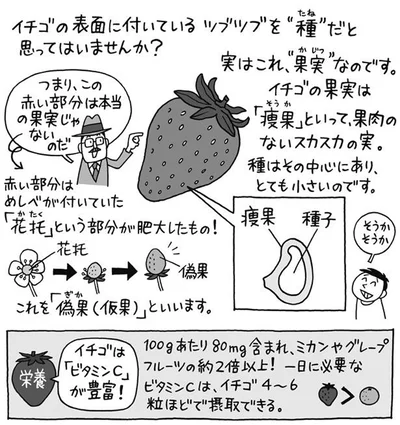 イチゴの表面に付いているツブツブを“種”だと
たね
思ってはいませんか？
実はこれ、“果実”なのです。
かじつ
イチゴの果実は
「痩果」といって、果肉の
そうか
ないスカスカの実。
種はその中心にあり、
とても小さいのです。
つまり、この
赤い部分は本当
の果実じゃ
ないのだ
赤い部分は
めしべが付いていた
「花托」という部分が肥大したもの！
かたく
花托
偽果
これを「偽果（仮果）」といいます。
ぎか
痩果
種子
そうか
そうか
栄養
イチゴは
「ビタミンC」
が豊富！
100gあたり80mg含まれ、ミカンやグレープ
フルーツの約2倍以上！一日に必要な
ビタミンCは、イチゴ4～6
粒ほどで摂取できる。
>